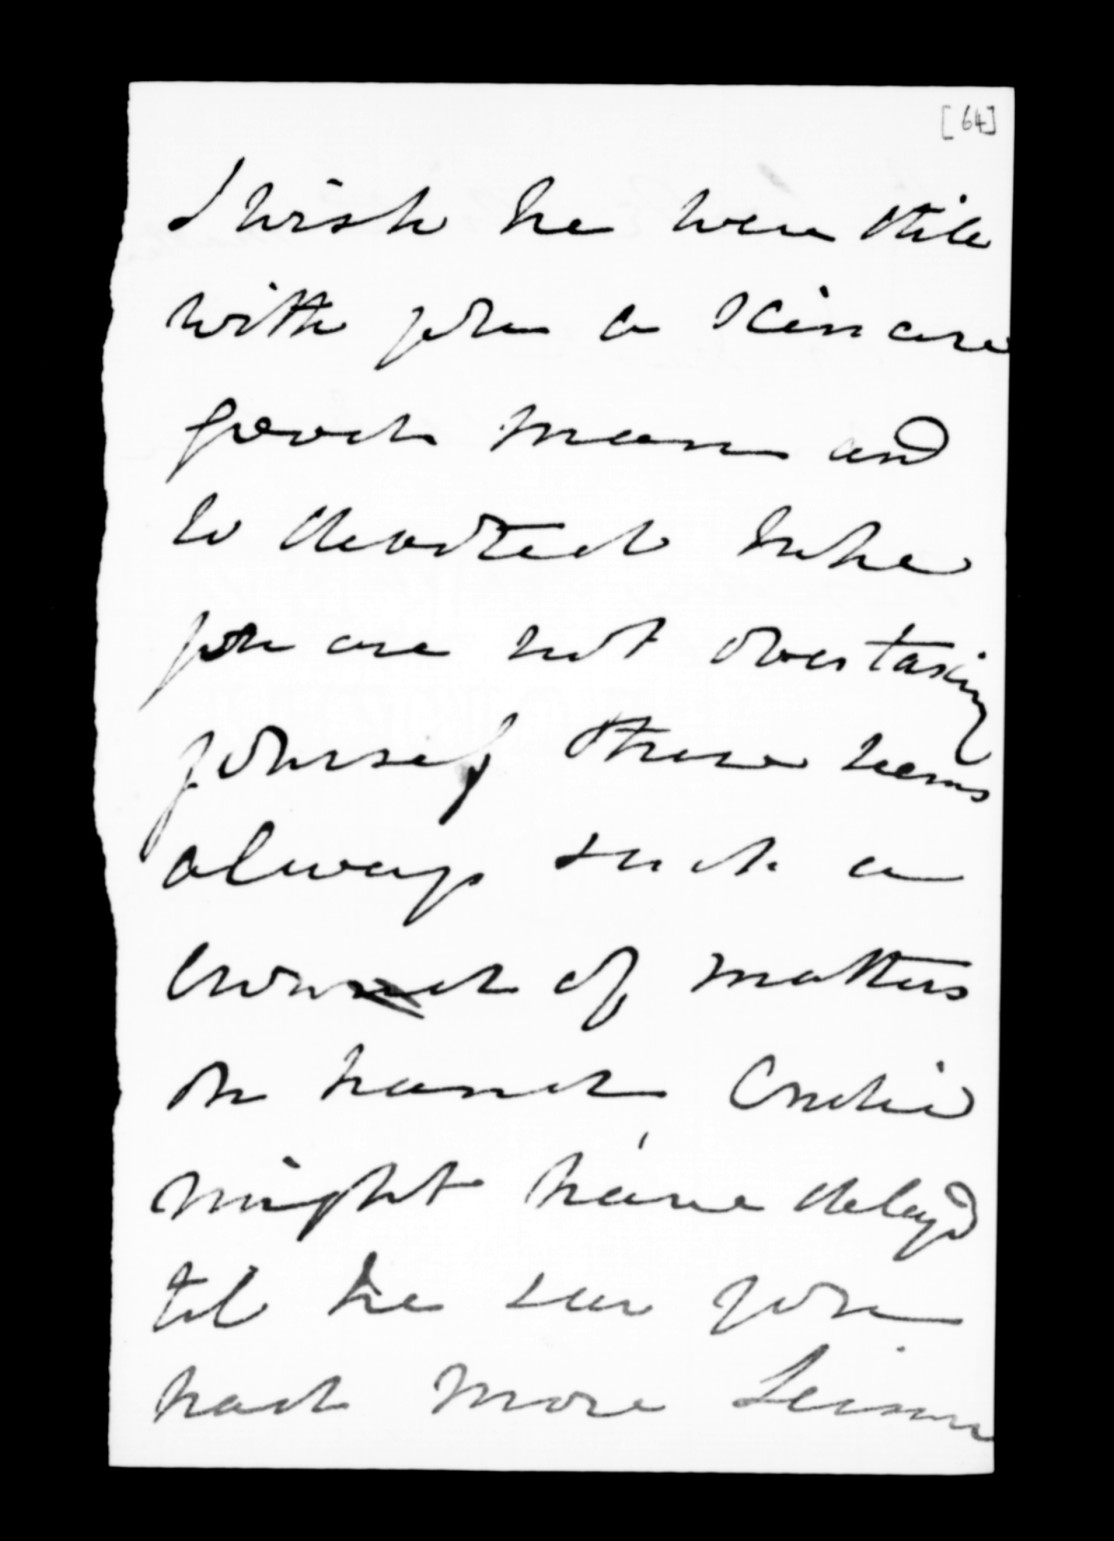 [64]
I wish he were still
with you a sincere
good man and
so devoted I hope
you are not overtaxing
yourself there seems
always such a
crowd of matters
on hand
might have delay'd
til he saw you
had more Leisure